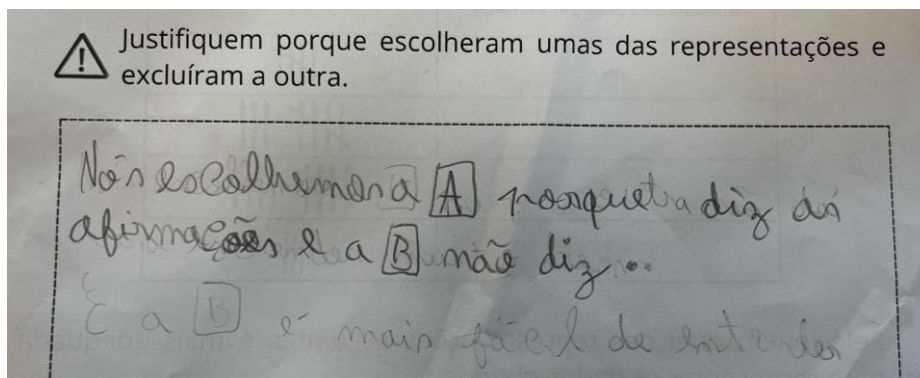 Justifiquem porque escolheram umas das representações e
excluíram a outra.
Nós escolhemos a A porque a diz as
afirmações e a B não diz...
E a B é mais fácil de entender